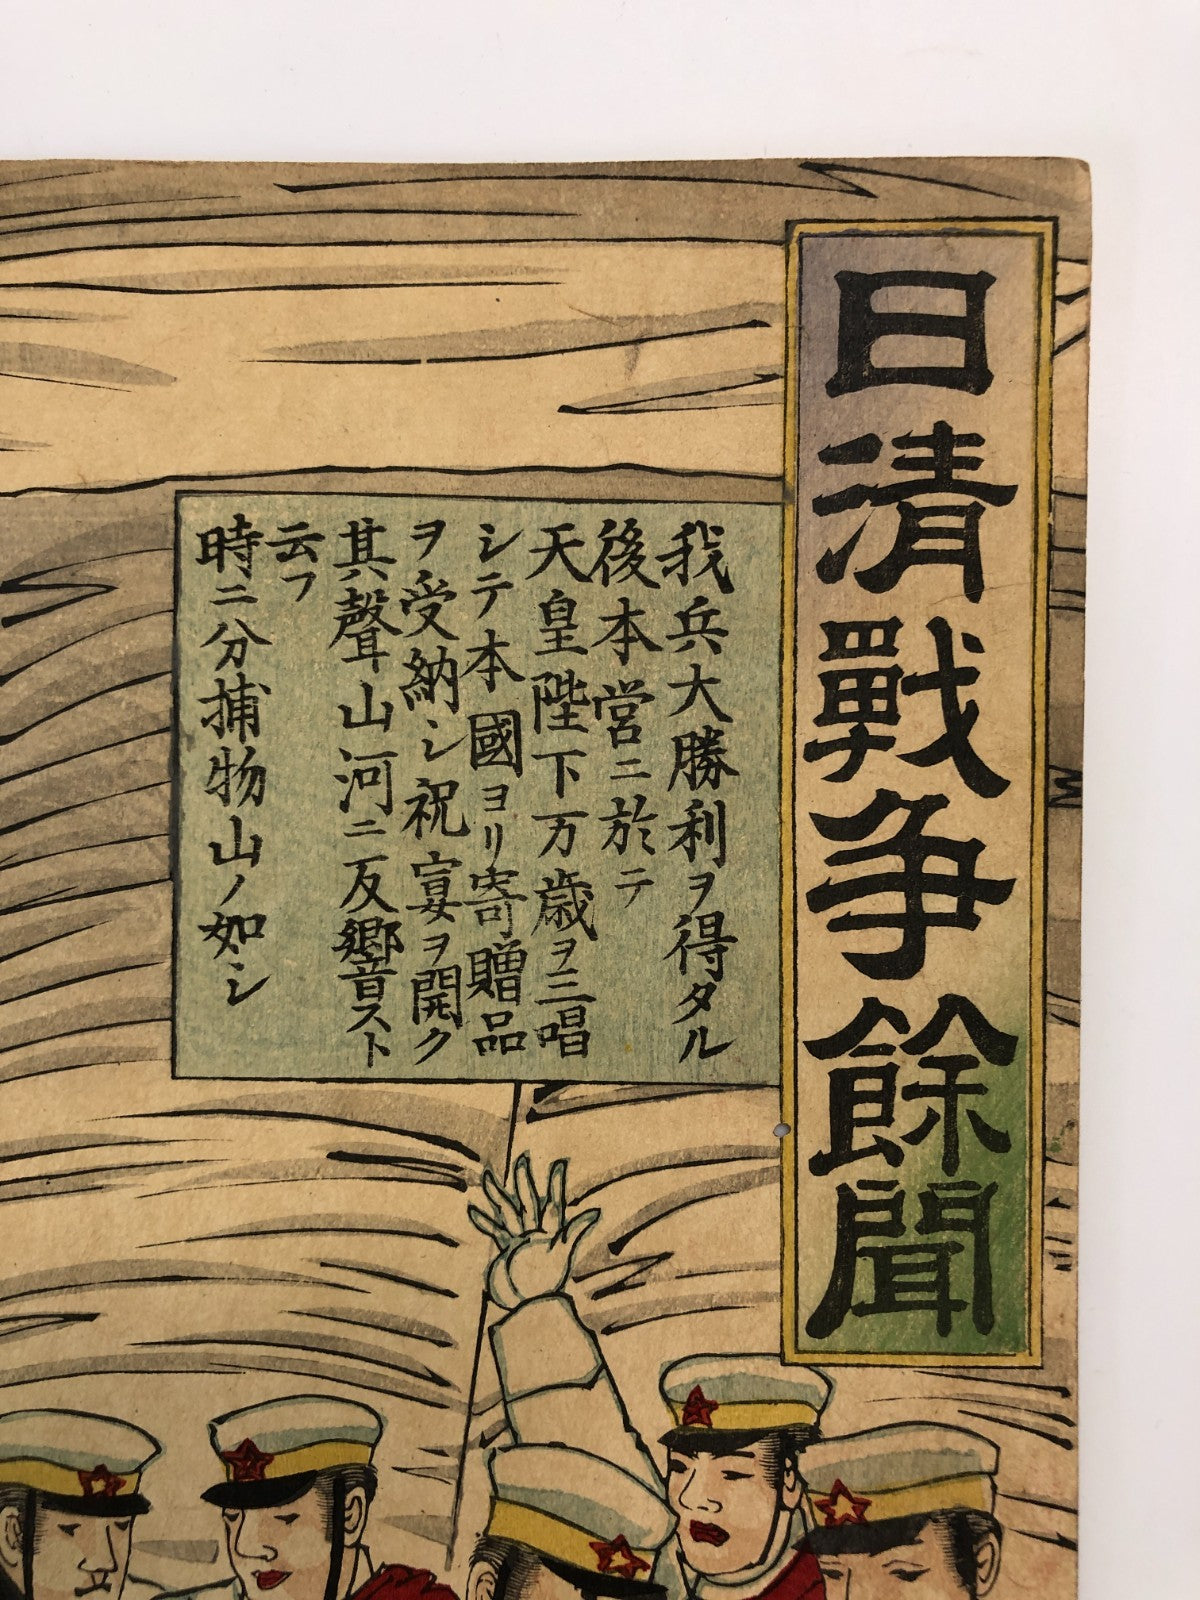 日清戰争餘聞
我兵大勝利ヲ得タル
後本営ニ於テ
天皇陛下万歳ヲ三唱
シテ本國ヨリ寄贈品
ヲ受納シ祝宴ヲ開ク
其聲山河ニ反響スト
云フ
時ニ分捕物山ノ如シ